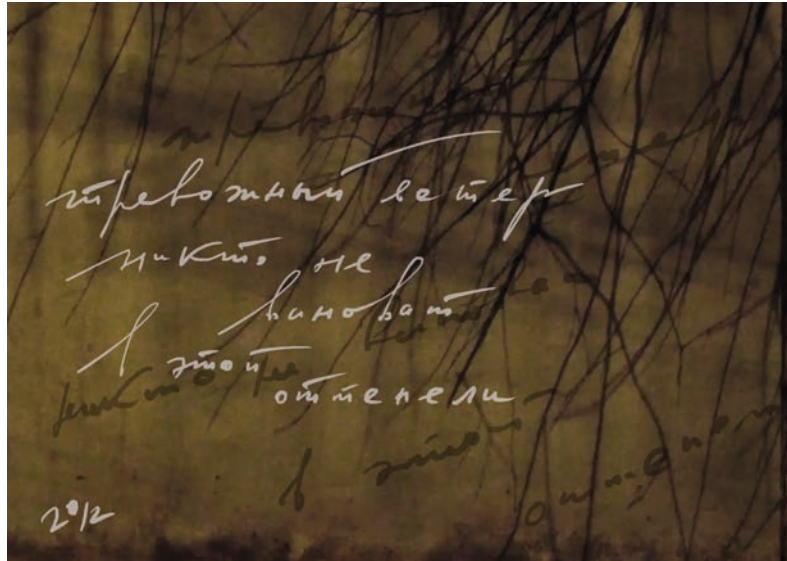 тревожный ветер
никто не
виноват
в этой
оттепели
2012